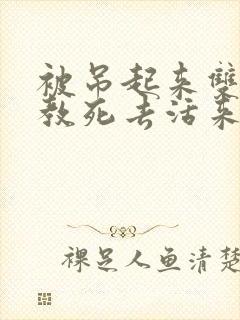 被吊起来双
教死去活来
裸足人鱼清楚